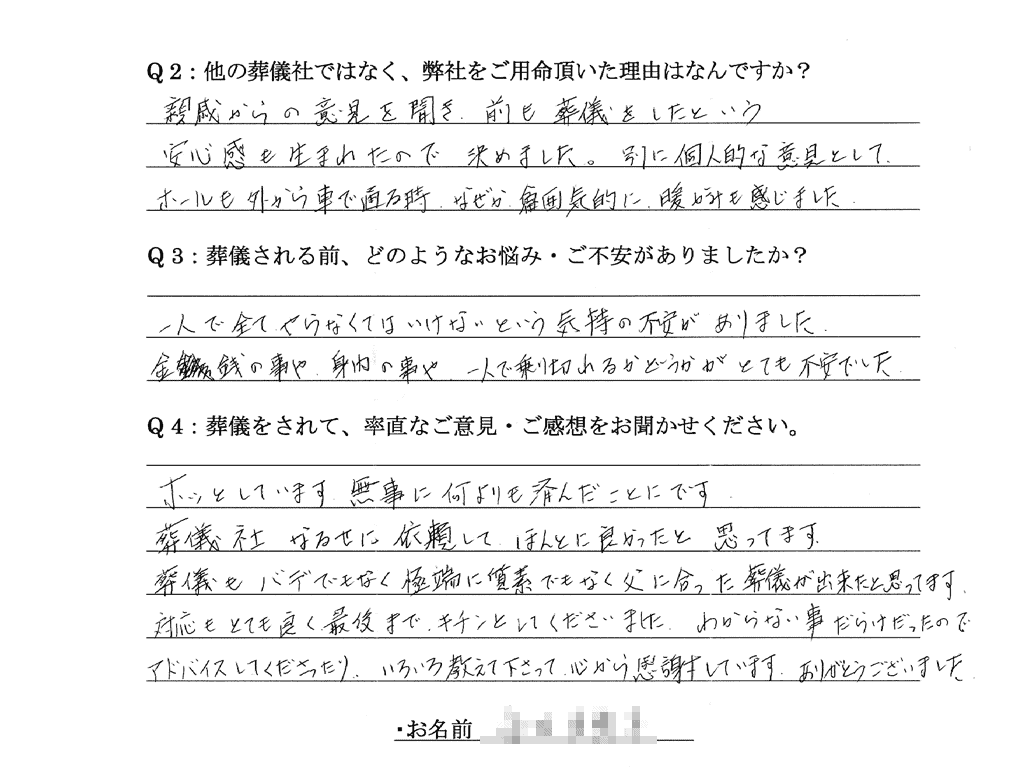 Q2：他の葬儀社ではなく、弊社をご用命頂いた理由はなんですか？
親戚からの意見を聞き、前も葬儀をしたという
安心感も生まれたので 決めました。別に個人的な意見として、
ホールも外から車で通る時、なぜか雰囲気的に、暖かみも感じました。
Q3：葬儀される前、どのようなお悩み・ご不安がありましたか？
一人で全てやらなくてはいけないという気持の不安がありました。
金銭の事や、身内の事や、一人で乗り切れるかどうかがとても不安でした。
Q4：葬儀をされて、率直なご意見・ご感想をお聞かせください。
ホッとしています。無事に何よりも済んだことにです。
葬儀社 なるせに依頼して、ほんとに良かったと 思ってます。
葬儀もハデでもなく極端に質素でもなく父に合った葬儀が出来たと思ってます。
対応もとても良く、最後まで、キチンとしてくださいました。わからない事だらけだったので
アドバイスしてくださったり、いろいろ教えて下さって、心から感謝しています。ありがとうございました。
・お名前